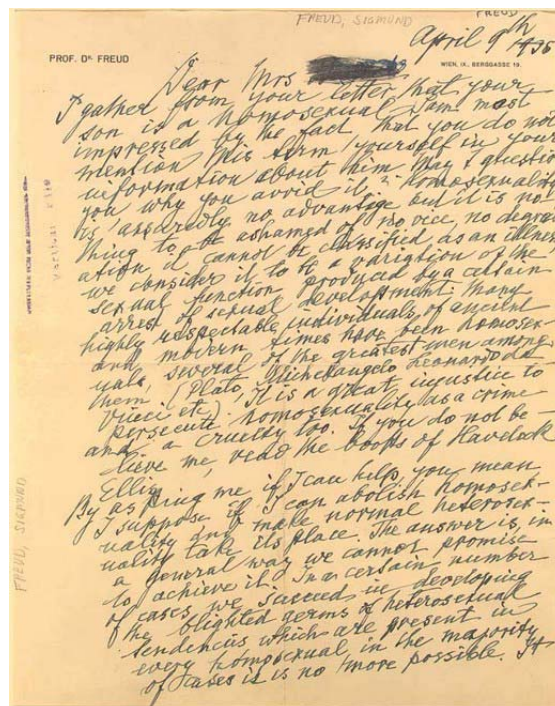 FREUD, SIGMUND
FREUD
April 9th 1935
PROF. DR. FREUD
WIEN, IX., BERGGASSE 19.
Dear Mrs
I gather from your letter that your
son is a homosexual. I am most
impressed by the fact that you do not
mention this term yourself in your
information about him. May I question
you why you avoid it? Homosexuality
is assuredly no advantage but it is no-
thing to be ashamed of, no vice, no degra-
ation, it cannot be classified as an illness
we consider it to be a variation of the
sexual function produced by a certain
arrest of sexual development. Many
highly respectable individuals of ancient
and modern times have been homosex-
uals, several of the greatest men among
them (Plato, Michelangelo, Leonardo da
Vinci etc). It is a great injustice to
persecute homosexuality as a crime
and a cruelty too. If you do not be-
lieve me, read the books of Havelock
Ellis.
By asking me if I can help you mean
I suppose if I can abolish homosex-
uality and make normal heterosex-
uality take its place. The answer is, in
a general way we cannot promise
to achieve it. In a certain number
of cases we succeed in developing
the blighted germs of heterosexual
tendencies which are present in
every homosexual, in the majority
of cases it is no more possible. It
FREUD, SIGMUND